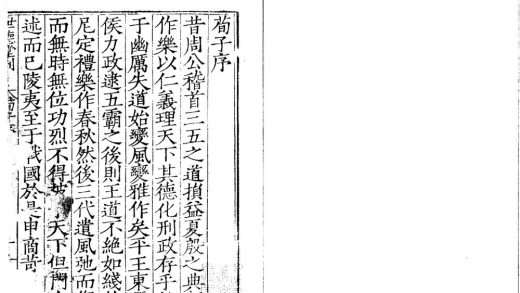 荀子序
昔周公稽首三五之道損益夏殷之典
作樂以仁義理天下其德化刑政存乎
于幽厲失道始變風變雅作矣平王東
侯力政逮五霸之後則王道不絕如綫
尼定禮樂作春秋然後三代遺風弛而
而無時無位功烈不得被于天下但門
述而已陵夷至于戰國於是申商苛